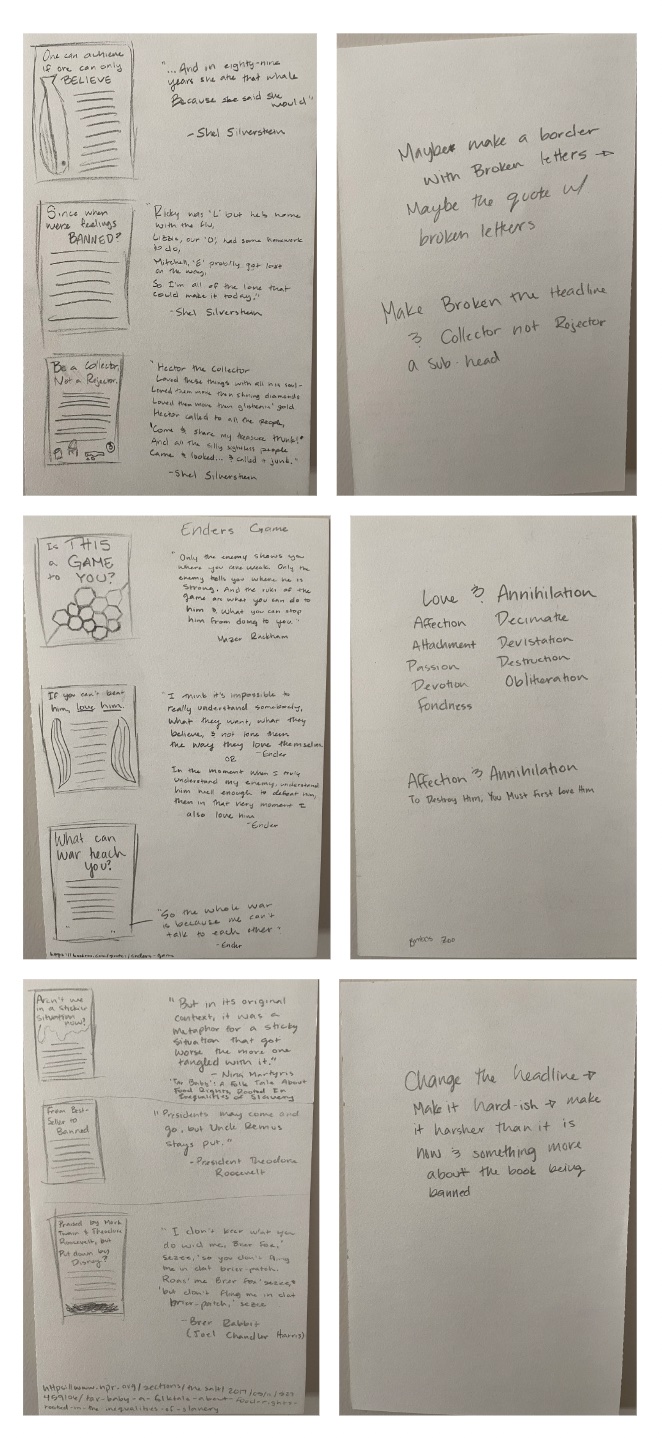 One can achieve
if one can only
BELIEVE
"...And in eighty-nine
years she ate that whale
Because she said she
would"
- Shel Silverstein
Since when
were feelings
BANNED?
"Ricky was 'L' but he's home
with the flu,
Lizzie, our 'O', had some homework
to do,
Mitchell, 'E' prob'ly got lost
on the way,
So I'm all of the love that
could make it today."
- Shel Silverstein
Be a Collector,
Not a Rejector.
"Hector the Collector
Loved these things with all his soul-
Loved them more then shining diamonds
Loved them more than glistenin' gold
Hector called to all the people,
'Come & share my treasure trunk!'
And all the silly sightless people
Came & looked... & called it junk."
- Shel Silverstein
Maybe make a border
with Broken letters →
Maybe the quote w/
broken letters
Make Broken the Headline
& Collector not Rejector
a sub-head
Is THIS
a GAME
to YOU?
Enders Game
"Only the enemy shows you
where you are weak. Only the
enemy tells you where he is
strong. And the rules of the
game are what you can do to
him & what you can stop
him from doing to you."
Mazer Rackham
If you can't beat
him, love him.
"I think it's impossible to
really understand somebody,
What they want, what they
believe, & not love them
the way they love themselves
- Ender
OR
In the moment when I truly
understand my enemy, understand
him well enough to defeat him,
then in that very moment I
also love him
- Ender
What can
war teach
you?
"So the whole war
is because we can't
talk to each other"
- Ender
Love & Annihilation
Affection Decimate
Attachment Devistation
Passion Destruction
Devotion Obliteration
Fondness
Affection & Annihilation
To Destroy Him, You Must First Love Him
Aren't we
in a sticky
situation
now?
"But in its original
context, it was a
metaphor for a sticky
situation that got
worse the more one
tangled with it."
- Nina Martyris
'Tar Baby': A Folk Tale About
Food Rights, Rooted In
Inequalities of Slavery
From Best-
Seller to
Banned
"Presidents may come and
go, but Uncle Remus
stays put."
- President Theodore
Roosevelt
Praised by Mark
Twain & Theodore
Roosevelt, but
Put down by
Disney?
"I don't keer w'at you
do wid me, Brer Fox,'
sezee, 'so you don't fling
me in dat brier-patch.
Roas' me Brer Fox' sezee,
'but don't fling me in dat
brier-patch,' sezee
- Brer Rabbit
(Joel Chandler Harris)
Change the headline →
Make it hard-ish → make
it harsher than it is
now & something more
about the book being
banned